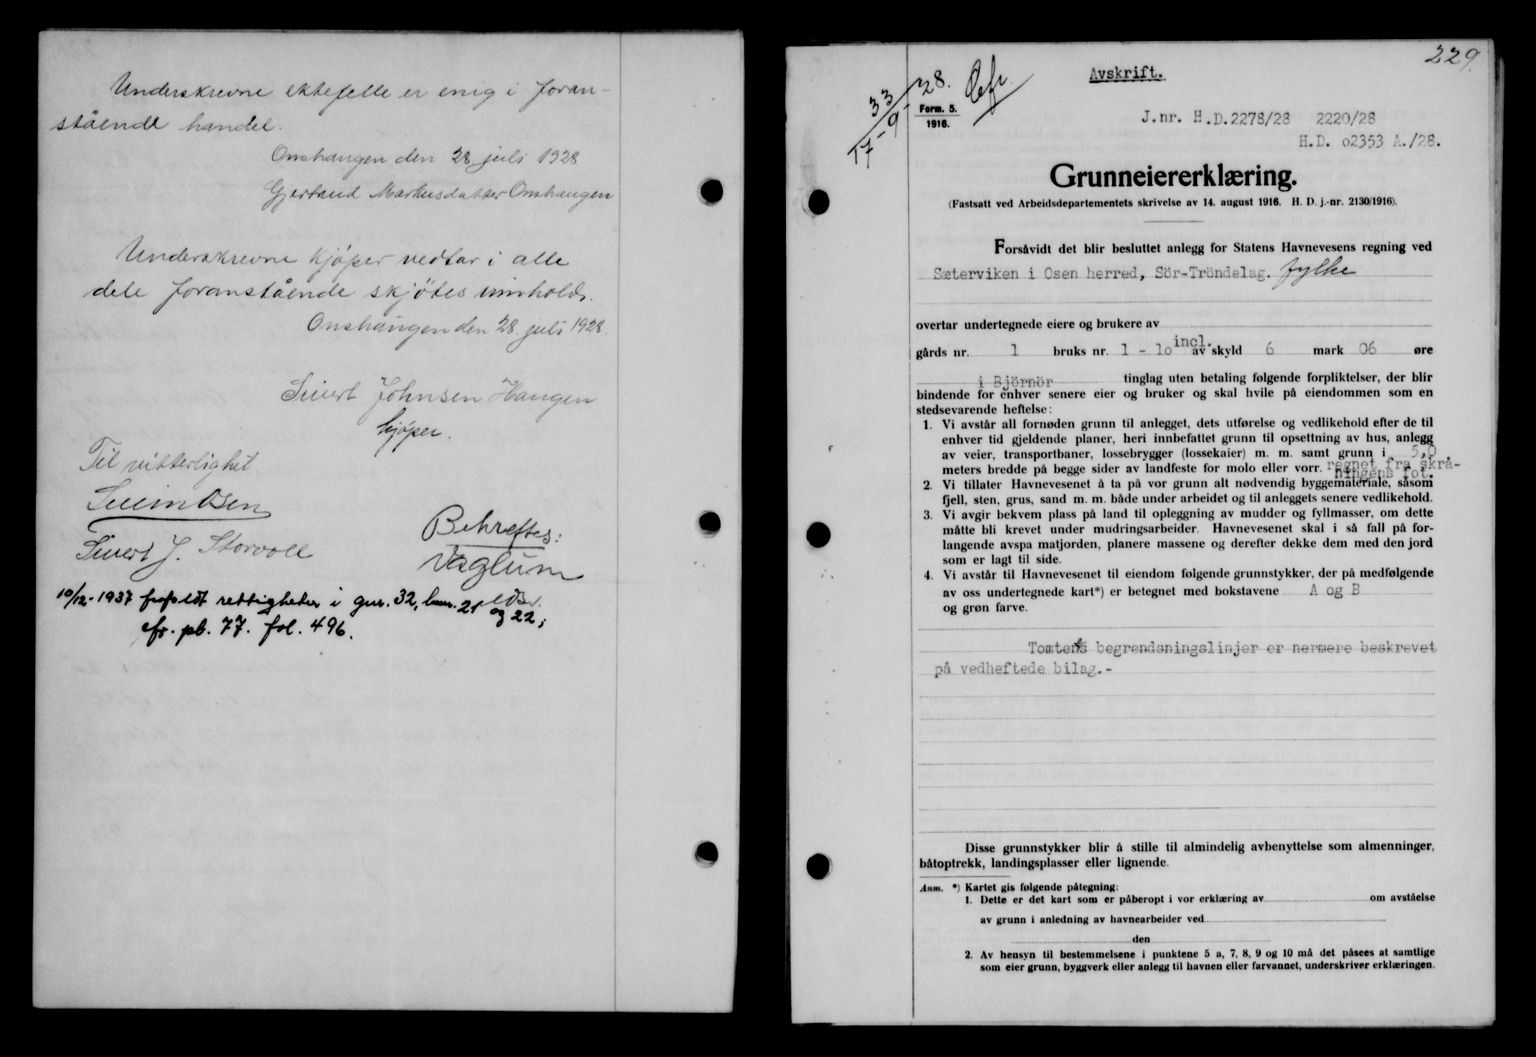 Underskrevne ektefelle er enig i foran-
stående handel.
Onshaugen den 28 juli 1928
Gjertrud Markusdatter Onshaugen
Underskrevne kjøper vedtar i alle
dele foranstående skjøtes innhold.
Onshaugen den 28. juli 1928.
Sivert Johnsen Haugen
kjøper.
Til vitterlighet
Osen
Sivert J. Storvoll
Behreftes:
Vaglum
10/12-1937 frafaldt rettigheter i gnr. 32, bnr. 21 og 22,
cfr. pb. 77. fol. 496.
229.
33
17-9-28.
Form. 5.
1916.
Avskrift.
J.nr. H.D.2278/28 2220/28
H.D. o2353 A./28.
Grunneiererklæring.
(Fastsatt ved Arbeidsdepartementets skrivelse av 14. august 1916. H. D. j.-nr. 2130/1916).
Forsåvidt det blir besluttet anlegg for Statens Havnevesens regning ved
Sæterviken i Osen herred, Sör-Tröndelag. fylke
overtar undertegnede eiere og brukere av
gårds nr. 1 bruks nr. 1 - 1o incl. av skyld 6 mark 06 øre
i Björnör tinglag uten betaling følgende forpliktelser, der blir
bindende for enhver senere eier og bruker og skal hvile på eiendommen som en
stedsevarende heftelse:
1. Vi avstår all fornøden grunn til anlegget, dets utførelse og vedlikehold efter de til
enhver tid gjeldende planer, heri innbefattet grunn til opsettning av hus, anlegg
av veier, transportbaner, lossebrygger (lossekaier) m. m. samt grunn i 5,0
meters bredde på begge sider av landfeste for molo eller vorr. regnet fra skrå-
ningens fot.
2. Vi tillater Havnevesenet å ta på vor grunn alt nødvendig byggemateriale, såsom
fjell, sten, grus, sand m. m. både under arbeidet og til anleggets senere vedlikehold.
3. Vi avgir bekvem plass på land til opleggning av mudder og fyllmasser, om dette
måtte bli krevet under mudringsarbeider. Havnevesenet skal i så fall på for-
langende avspa matjorden, planere massene og derefter dekke dem med den jord
som er lagt til side.
4. Vi avstår til Havnevesenet til eiendom følgende grunnstykker, der på medfølgende
av oss undertegnede kart*) er betegnet med bokstavene A og B
og grøn farve.
Tomtens begrendsningslinjer er nermere beskrevet
på vedheftede bilag.-
Disse grunnstykker blir å stille til almindelig avbenyttelse som almenninger,
båtoptrekk, landingsplasser eller lignende.
Anm. *) Kartet gis følgende påtegning:
1. Dette er det kart som er påberopt i vor erklæring av om avståelse
av grunn i anledning av havnearbeider ved
den
2. Av hensyn til bestemmelsene i punktene 5 a, 7, 8, 9 og 10 må det påsees at samtlige
som eier grunn, byggverk eller anlegg til havnen eller farvannet, underskriver erklæringen.